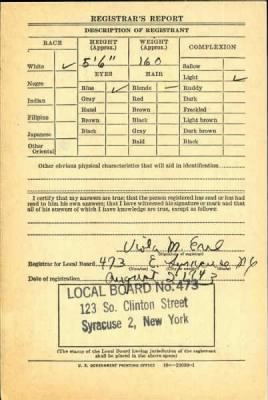 REGISTRAR'S REPORT
DESCRIPTION OF REGISTRANT
RACE HEIGHT (Approx.) WEIGHT (Approx.) COMPLEXION
White ✓ 5'6" 160 Sallow
EYES HAIR Light ✓
Negro Blue ✓ Blonde Ruddy
Indian Gray Red Dark
Hazel Brown Freckled
Filipino Brown Black Light brown
Japanese Black Gray Dark brown
Other Oriental Bald Black
Other obvious physical characteristics that will aid in identification
I certify that my answers are true; that the person registered has read or has had
read to him his own answers; that I have witnessed his signature or mark and that
all of his answers of which I have knowledge are true, except as follows:
Viola M.
(Signature of registrar)
Registrar for Local Board 473 E. Syracuse NY
Date of registration August 2
LOCAL BOARD No. 473
123 So. Clinton Street
Syracuse 2, New York
(The stamp of the Local Board having jurisdiction of the registrant
shall be placed in the above space)
U. S. GOVERNMENT PRINTING OFFICE